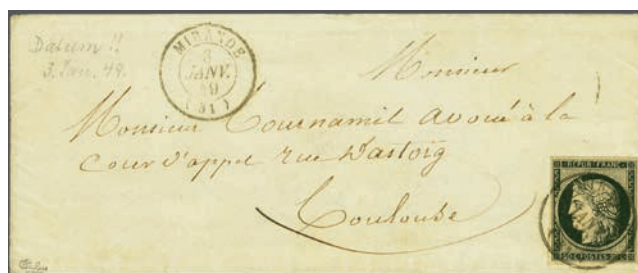 Datum !!
3. Jan. 49.
MIRANDE
3
JANV.
49
(31)
Monsieur
Monsieur Tournamil avoué à la
Cour d'appel rue Dastorg
Toulouse
REPUB. FRANC.
20 C. POSTES 20 C.